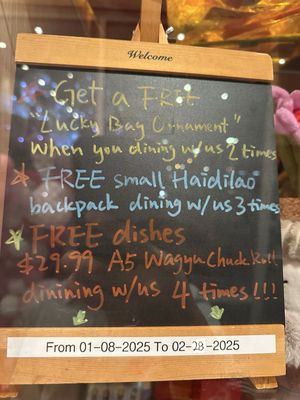 Welcome
Get a FREE
"Lucky Bag Ornament"
when you dining w/us 2 times
FREE small Haidilao
backpack dining w/us 3 times
FREE dishes
$29.99 A5 Wagyu Chuck Roll
dinining w/us 4 times!!!
From 01-08-2025 To 02-28-2025